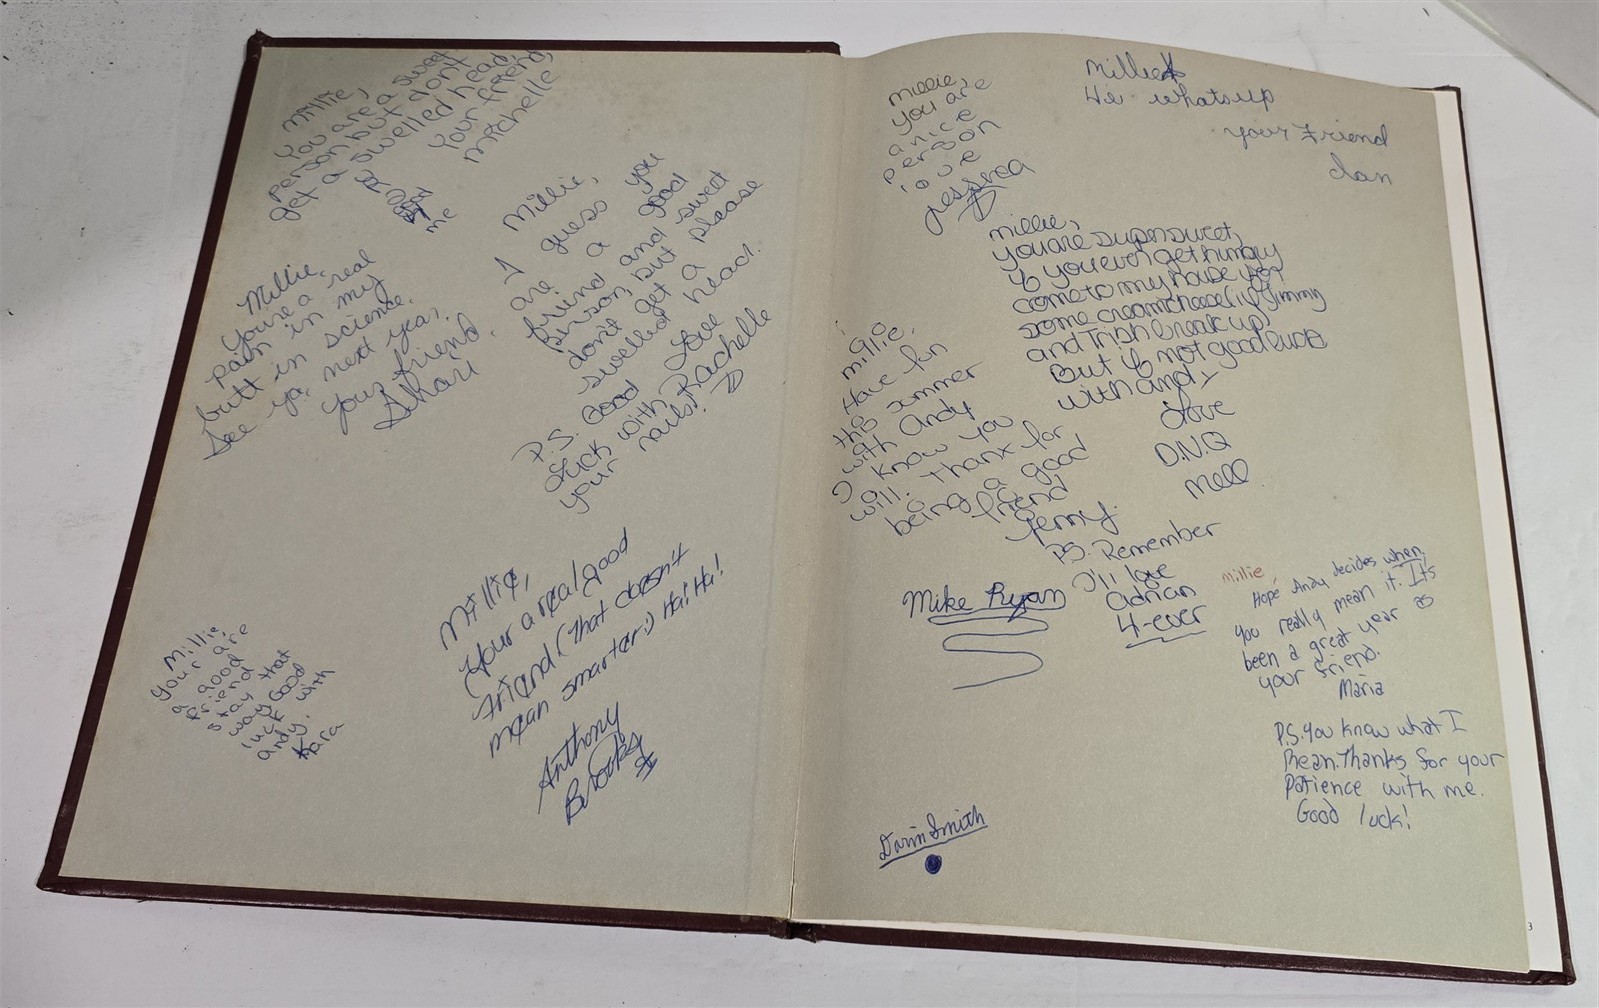 Millie,
You are a sweet
person but dont
get a swelled head,
your friend,
Michelle
me
Millie,
You're a real
pain in my
butt in science.
See ya, next year,
your friend
Shari
Millie,
I guess you
are a good
friend and sweet
person, but please
don't get a
swelled head.
Love
Rachelle
P.S. Good
luck with
your nails!
Millie,
your are
a good
friend
stay that
way Good
luck with
andy.
Kara
Millie,
Your a real good
Friend (that doesn't
mean smarter:) Ha! Ha!
Anthony
Brooks
Millie,
you are
a nice
person
love
Jessica
Millie
Hi whats up
your Friend
dan
millie,
you are super sweet,
If you ever get hungry
come to my house for
some creamcheese (if Jimmy
and Trish break up)
But if not good luck
with andy
Love
D.N.Q
Mell
millie,
Have fun
this summer
with Andy
I know you
will. Thanx for
being a good
friend
Jenny.
P.S. Remember
I'll love
adrian
4-ever
Mike Ryan
millie,
Hope Andy decides when
you really mean it. Its
been a great year
your friend.
Maria
P.S. You know what I
Bean. Thanks for your
Patience with me.
Good luck!
Darin Smith
3